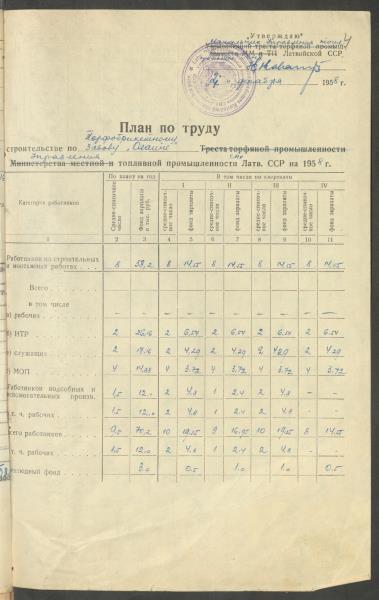 4
„Утверждаю“
треста торфяной промыш-
МТП Латвийской ССР
декабря 1958 г.
План по труду
строительстве по Торфобрикетному Треста торфяной промышленности
Заводу „Олайне“
Управления
Министерства местной и топливной промышленности Латв. ССР на 1958 г.
Категория работников
По плану на год
В том числе по кварталам
I II III IV
Средне-списочное число
Фонд зарплаты в тыс. руб.
средне-списочное число
фонд зарплаты
средне-списочное число
фонд зарплаты
средне-списочное число
фонд зарплаты
средне-списочное число
фонд зарплаты
1 2 3 4 5 6 7 8 9 10 11
Работников на строительных
и монтажных работах 8 58,2 8 14.55 8 14.55 8 14.55 8 14.55
Всего
в том числе
а) рабочих – – – – – – – – – –
б) ИТР 2 26.16 2 6.54 2 6.54 2 6.54 2 6.54
служащих 2 17.16 2 4.29 2 4.29 2 4.29 2 4.29
МОП 4 14.88 4 3.72 4 3.72 4 3.72 4 3.72
Работников подсобных и
вспомогательных произв. 1,5 12.0 2 4.8 1 2.4 2 4.8 – –
т. ч. рабочих 1,5 12.0 2 4.8 1 2.4 2 4.8 – –
Всего работников 9,5 70,2 10 19.35 9 16.95 10 19.35 8 14.55
т. ч. рабочих 1.5 12.0 2 4.8 1 2.4 2 4.8 – –
фонд 3.0 0.5 1.0 1.0 0.5